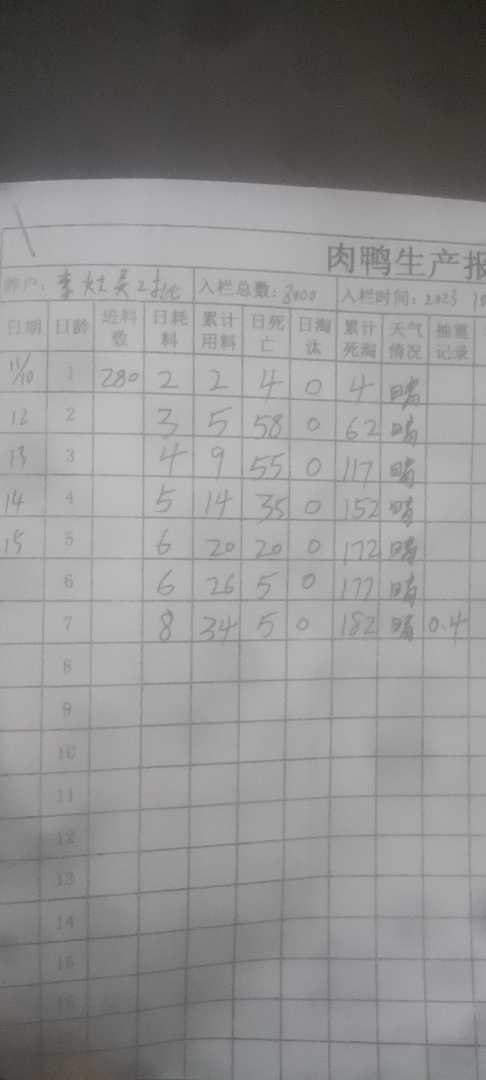 肉鸭生产报
养户: 李 吴2批 入栏总数: 8000 入栏时间: 2023 10
日期 日龄 进料数 日耗料 累计用料 日死亡 日淘汰 累计死淘 天气情况 抽重记录
11/10 1 280 2 2 4 0 4 晴
12 2 3 5 58 0 62 晴
13 3 4 9 55 0 117 晴
14 4 5 14 35 0 152 晴
15 5 6 20 20 0 172 晴
6 6 26 5 0 177 晴
7 8 34 5 0 182 晴 0.4
8
9
10
11
12
13
14
15
16